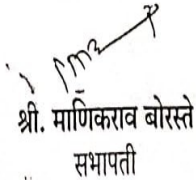 श्री. माणिकराव बोरस्ते
सभापती